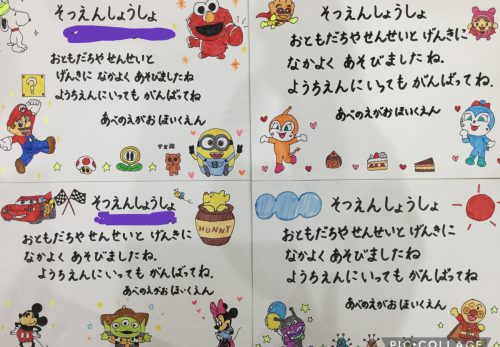 そつえんしょうしょ
おともだちや せんせいと
げんきに なかよく あそびましたね
ようちえんにいっても がんばってね
あべのえがお ほいくえん
そつえんしょうしょ
おともだちや せんせいと げんきに
なかよく あそびましたね.
ようちえんにいっても がんばってね.
あべのえがお ほいくえん
そつえんしょうしょ
おともだちや せんせいと げんきに
なかよく あそびましたね.
ようちえんにいっても がんばってね.
あべのえがお ほいくえん
HUNNY
そつえんしょうしょ
おともだちや せんせいと げんきに
なかよく あそびましたね.
ようちえんにいっても がんばってね.
あべのえがお ほいくえん
PIC•COLLAGE